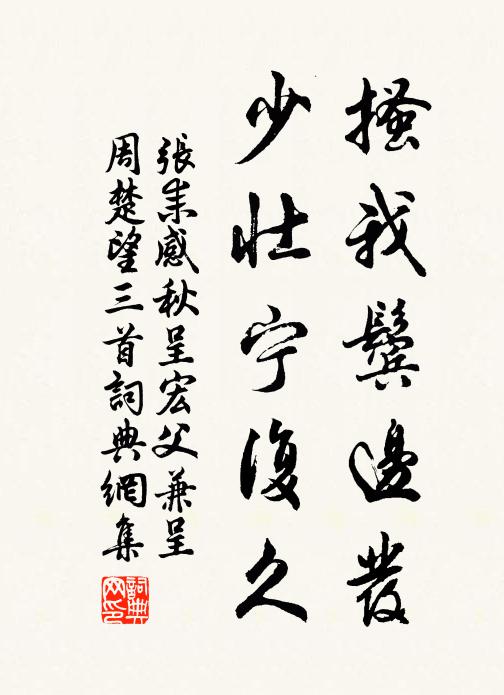 搔我鬢邊發
少壯宁復久
張耒感秋呈宏父兼呈
周楚望三首詞典網集
詞典
网印